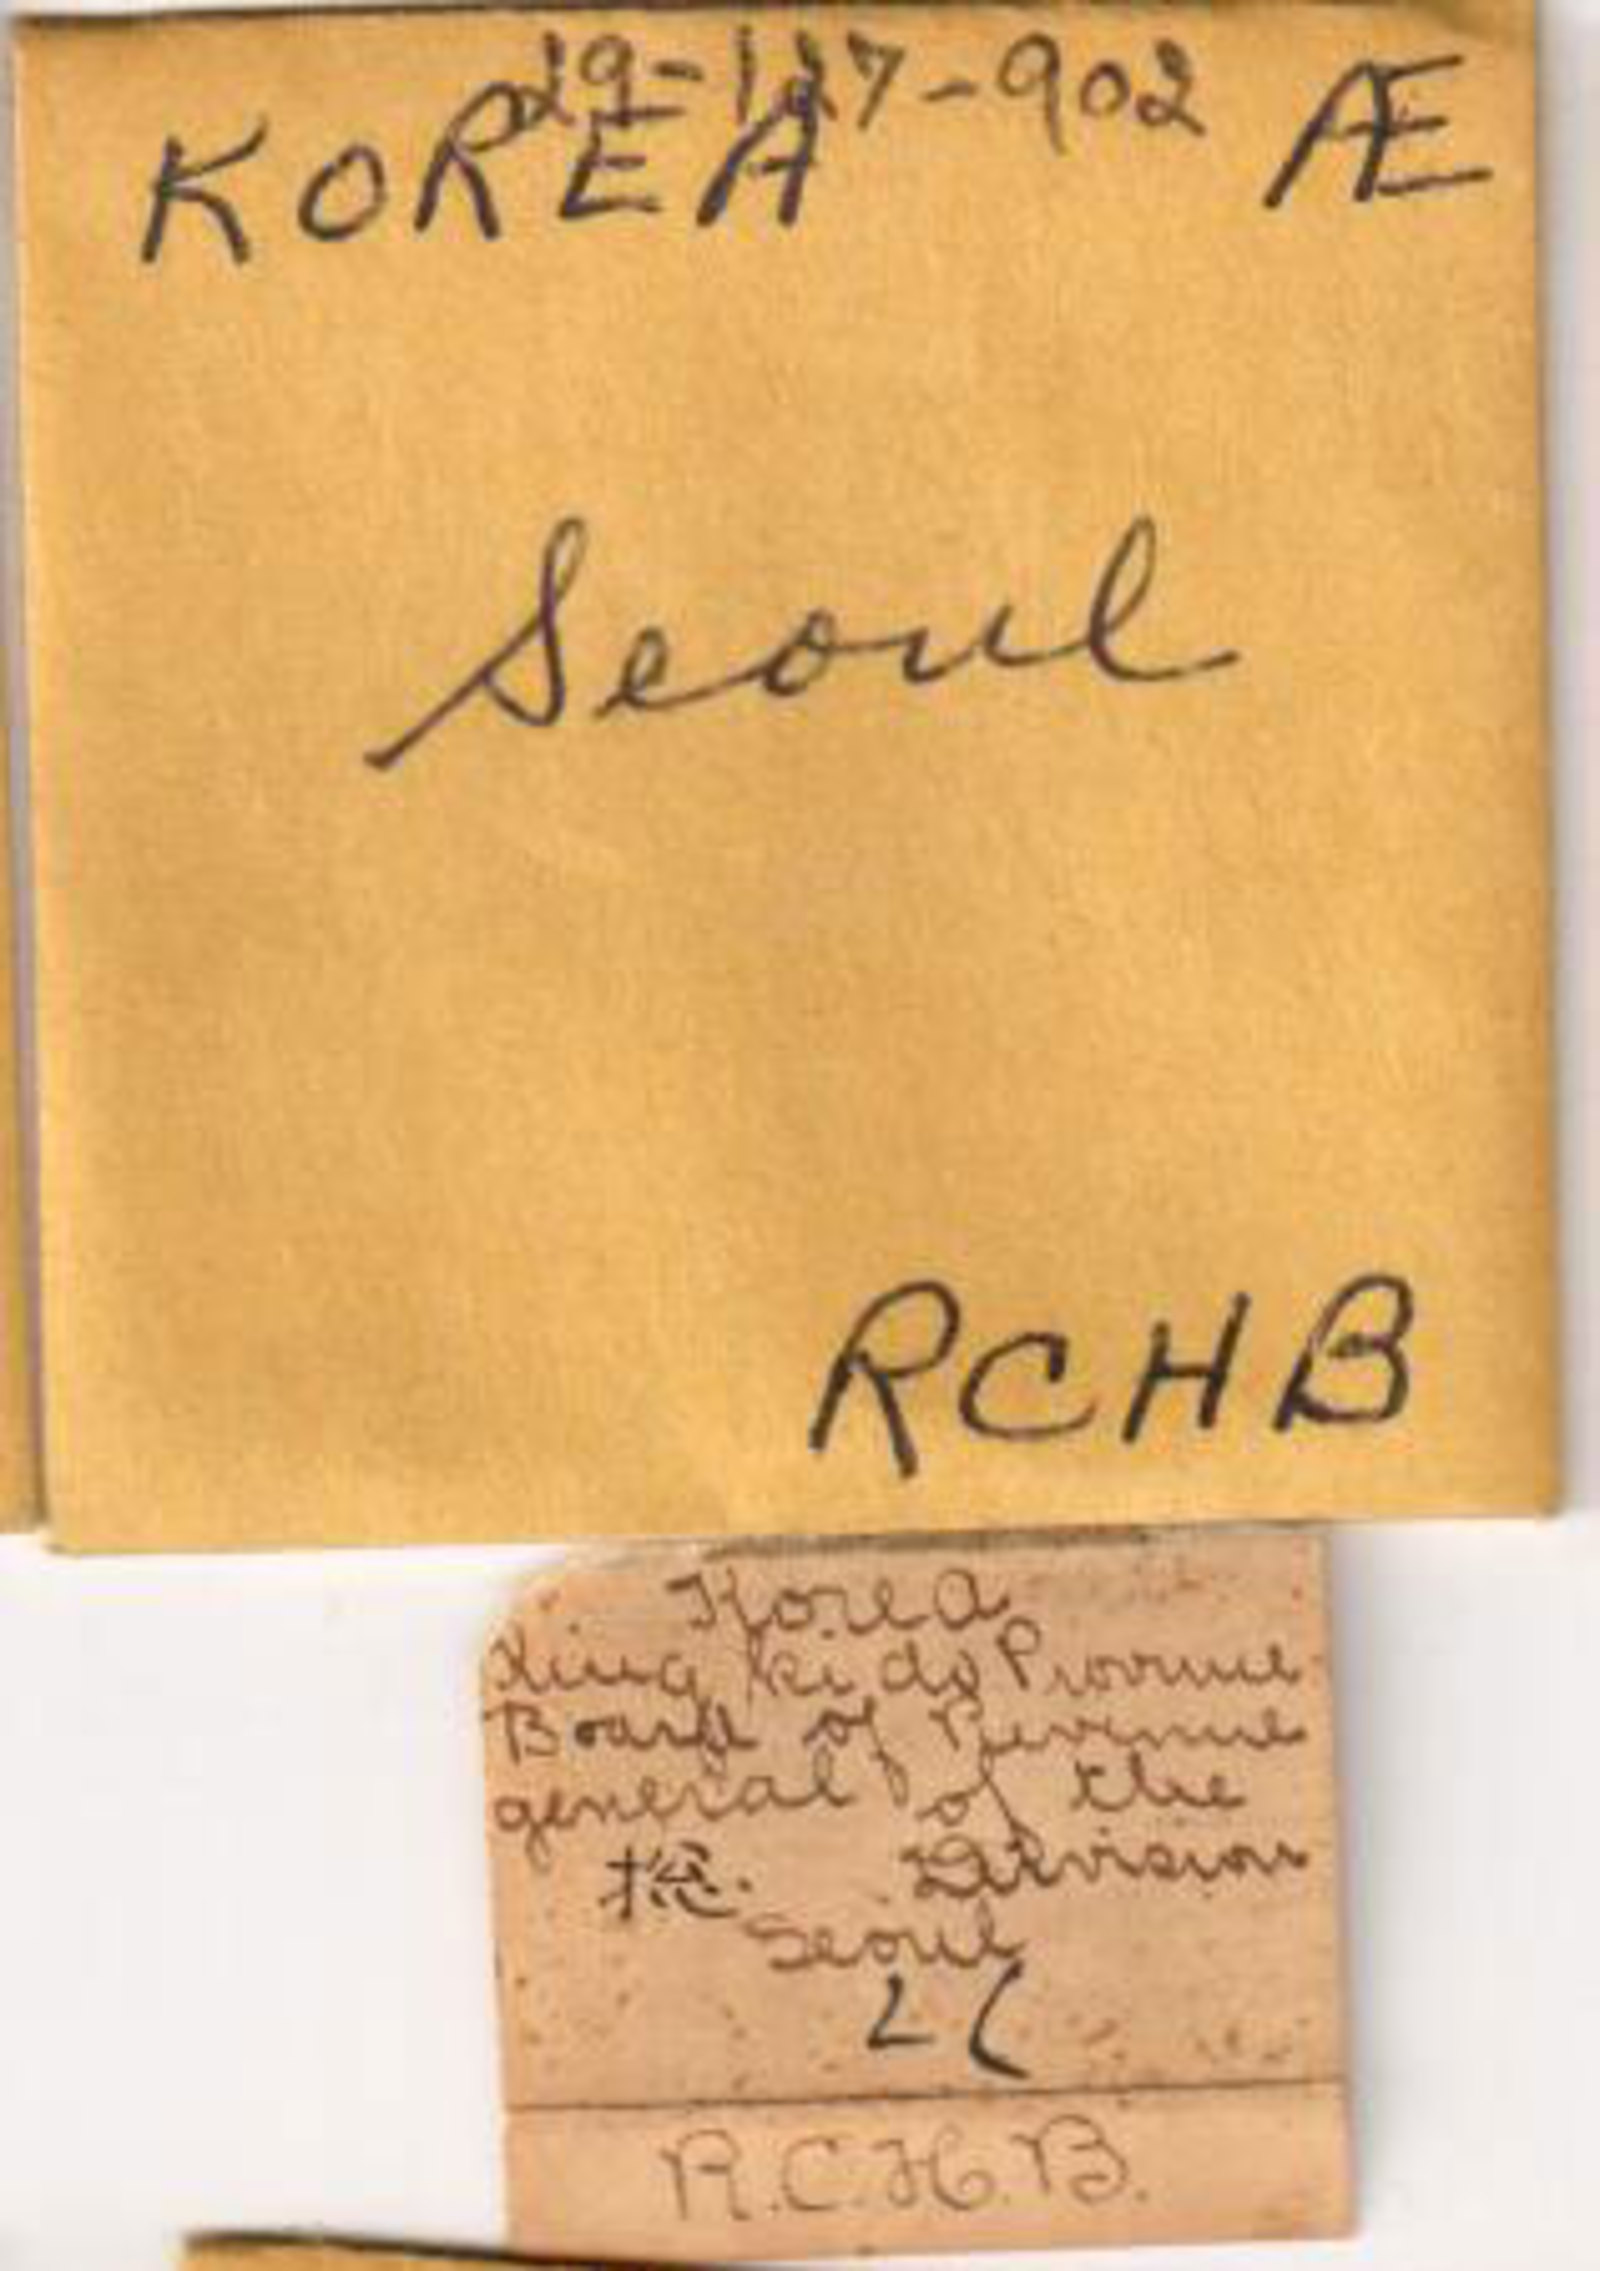 29-127-902
KOREA Æ
Seoul
RCHB
Korea
King ki do Province
Board of Revenue
general of the
捴. Division
Seoul
R.C.H.B.